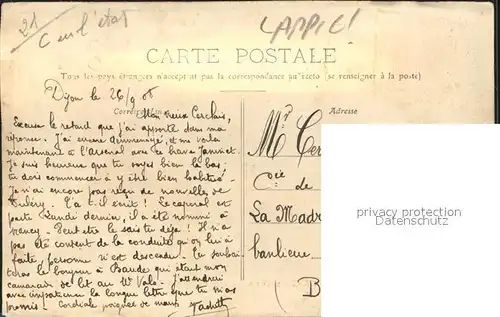 21
Cerl l'état
LAPPIE!
CARTE POSTALE
Tous les pays étrangers n'acceptent pas la correspondance au recto (se renseigner à la poste)
Dijon le 26/9 08
Correspondance
Adresse
Mon vieux Cerclais,
Excuse le retard que j'ai apporté dans ma
réponse. J'ai encore déménagé, et me voilà
maintenant à l'Arsenal avec ce brave Jannet.
Je suis heureux que tu soyes bien là bas;
tu dois commencer à y être bien habitué.
Je n'ai encore pas reçu de nouvelles de
T'a t-il écrit ! Le caporal est
parti Lundi dernier, il a été nommé à
Nancy. Peut être le sais tu déjà ! Il n'a
pas été content de la conduite qu'on lui a
faite, personne n'est descendu. Tu souhai-
teras le bonjour à Baude qui était mon
camarade de lit au J'attendrai
avec impatience la longue lettre que tu m'as
promis. Cordiale poignée de mains
Mr Cer
Cie
de
La Madr
banlieue
B
privacy protection
Datenschutz